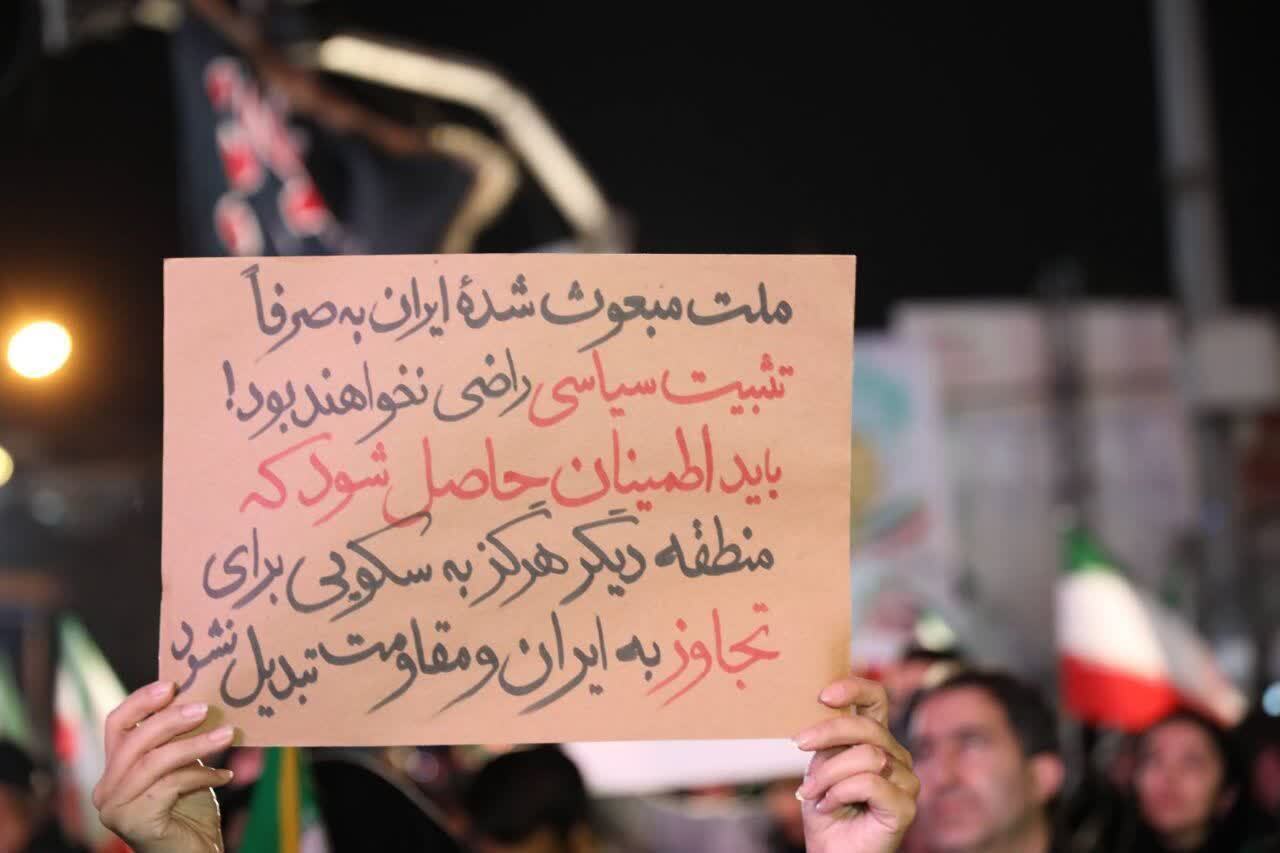 ملت مبعوث شدهٔ ایران به صرفاً
تثبیت سیاسی راضی نخواهند بود!
باید اطمینان حاصل شود که
منطقه دیگر هرگز به سکویی برای
تجاوز به ایران و مقاومت تبدیل نشود